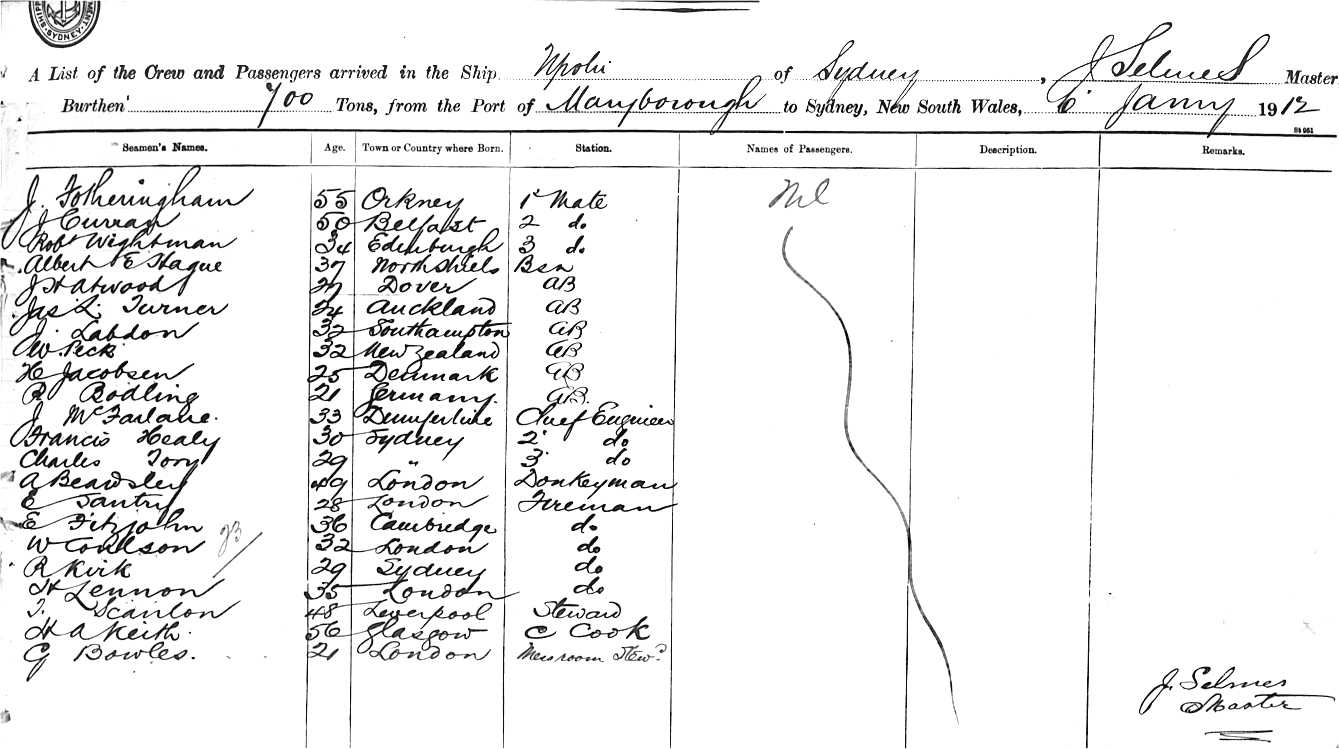 SYDNEY
A List of the Crew and Passengers arrived in the Ship Upolu of Sydney, J Selmes Master
Burthen 700 Tons, from the Port of Maryborough to Sydney, New South Wales, 6' Janny 1912
St 961
Seamen's Names. Age. Town or Country where Born. Station. Names of Passengers. Description. Remarks.
J. Fotheringham 55 Orkney 1' Mate Nil
J Curran 50 Belfast 2 do
Robt Wightman 34 Edinburgh 3 do
Albert E Hague 37 North Shiels Bsn
J Hatwood 27 Dover AB
Jas L. Turner 24 Auckland AB
J. Labdon 32 Southampton AB
W. Peck 32 New Zealand AB
H Jacobsen 25 Denmark AB
R Bodling 21 Germany. AB.
J McFarlane. 33 Dumferline Chief Engineer
Francis Healy 30 Sydney 2' do
Charles Tory 29 " 3' do
A Beardsley 49 London Donkeyman
E Santry 28 London Fireman
E Fitzjohn 36 Cambredge do
W Coulson 32 London do
R Kirk 29 Sydney do
H Lennon 35 London do
T. Scanlon 48 Liverpool Steward
H A Keith. 56 Glasgow C Cook
G Bowles. 21 London Messroom Stewd
J. Selmes
Master